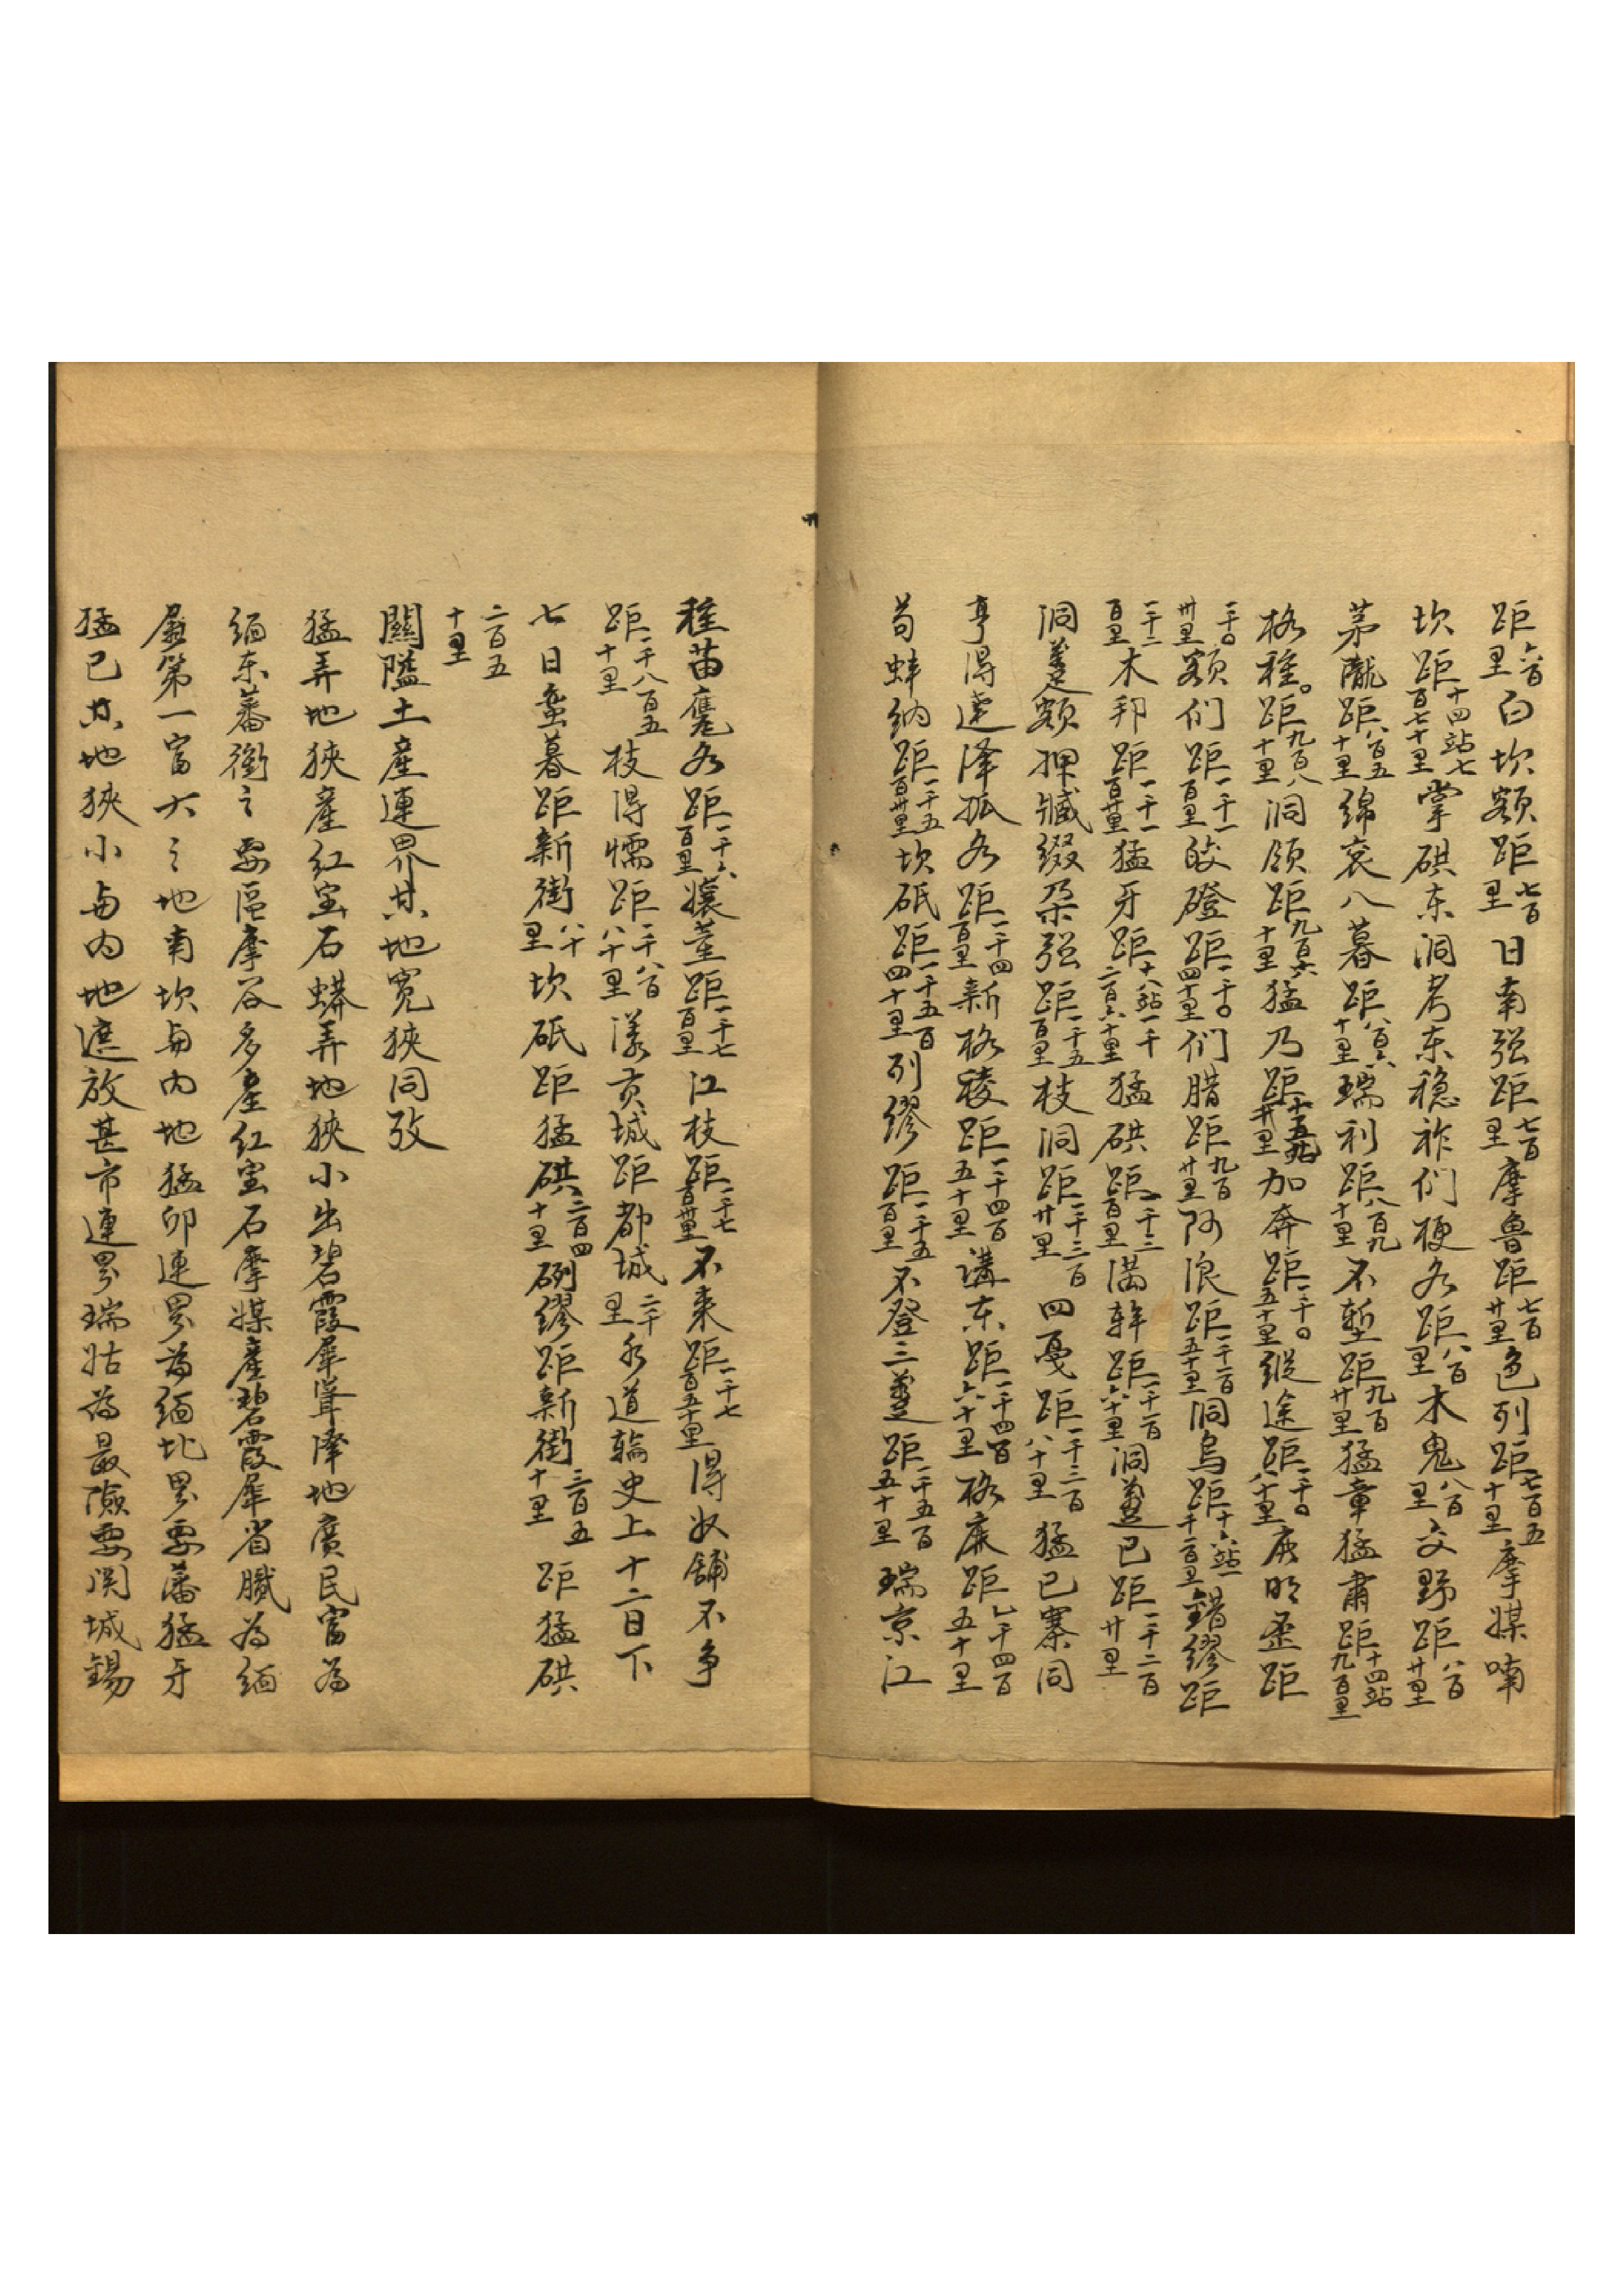 距六百里白坎額距七百里日南强距七百里摩魯距七百廿里色列距七百五十里摩媒喃
坎距十四站七百七十里掌硔东洞考东稳祚们梗各距八百里木鬼八百里交野距八百廿里
茅隴距八百五十里綿衮八暮距八百六十里瑞利距八百九十里不塹距九百廿里猛章猛肅距十四站九百里
格稚距九百八十里洞領距九百六十里猛乃距加奔距一千〇五十里縱途距一千〇八十里庚明歪距
一千〇卅里額们距一千一百里皎磴距一千〇四十里们腊距九百廿里阿浪距一千一百五十里洞烏距十六站一千一百里錯繆距
一千二百里木邦距一千一百廿里猛牙距十八站一千二百六十里猛硔距一千三百里满幹距一千一百六十里洞邁已距一千二百廿里
洞邁額押喊缀朵强距一千五百里枝洞距一千三百廿里四戞距一千三百八十里猛已寨同
亨得連泽孤各距一千四百里新格稜距一千四百五十里講东距一千四百六十里格庲距一千四百五十里
苟蚌纳距一千五百廿里坎砥距一千五百四十里列繆距一千五百里不登三邁距一千五百五十里瑞京江
稚苗廘各距一千六百里孃董距一千七百里江枝距一千七百卅里不来距一千七百五十里得奴舖不争
距一千八百五十里枝得懦距一千八百八十里漾贡城距都城二千里水道輪史上十二日下
七日蛮暮距新街八十里坎砥距猛硔三百四十里硎繆距新街三百五十里距猛硔
二百五十里
關隘土産連界其地寛狹同攷
猛弄地狹産红宝石蟒弄地狹小出碧霞犀聳漳地廣民富為
缅东蕃衝之要區摩谷多産红宝石摩媒産碧霞犀省臘為缅
屬第一富大之地南坎与内地猛卯連界為缅北界要藩猛牙
猛已其地狹小与内地遮放甚市連界瑞姑為最險要関城錫